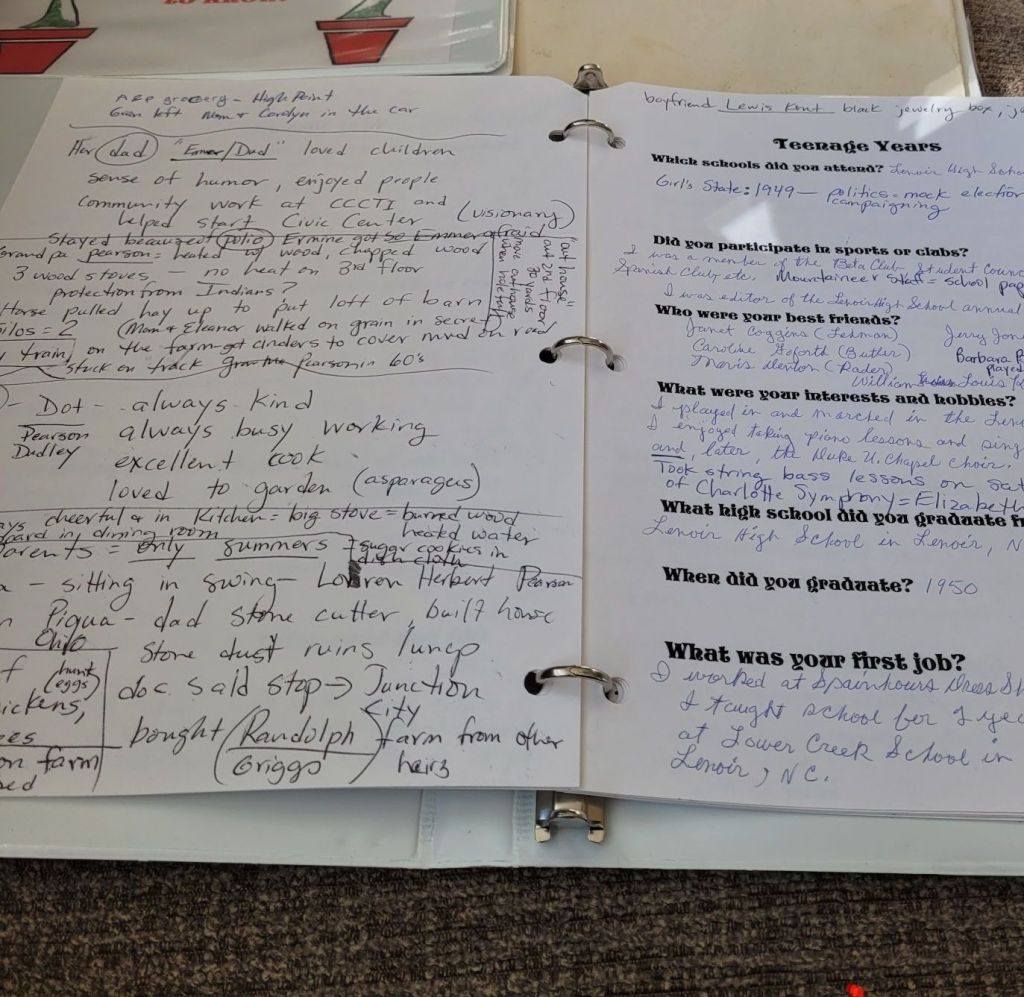 TO KNOW
A&P grocery - High Point
Gran left Mom & Carolyn in the car
Her dad "Emmer/Dad" loved children
sense of humor, enjoyed people
community work at CCCTI and (visionary)
helped start Civic Center
Stayed because of polio Ermine got so Emmer afraid
Grandpa pearson = heated w/ wood, chopped wood
3 wood stoves - no heat on 3rd floor
protection from Indians?
Horse pulled hay up to put loft of barn
silos = 2 (Mom & Eleanor walked on grain in secret)
train, on the farm-get cinders to cover mud on road
stuck on track Pearson in 60's
"out house"
out 2nd floor
30 yards
move outhouse
when hole full
- Dot - always kind
Pearson always busy working
Dudley excellent cook
loved to garden (asparagus)
cheerful & in kitchen = big stove = burned wood
heated water
in dining room
parents = only summers sugar cookies in
dish cloth
- sitting in swing - Lorren Herbert Pearson
Piqua - dad stone cutter, built house
Ohio
Stone dust ruins lung
(hunt eggs) doc. said stop → Junction
chickens, City
bought (Randolph farm from other
Griggs) heirs
on farm
boyfriend Lewis Kent black jewelry box,
Teenage Years
Which schools did you attend? Lenoir High Schoo
Girl's State: 1949 - politics - mock election
campaigning
Did you participate in sports or clubs?
I was a member of the Beta Club, Student Counc
Spanish Club, etc. Mountaineer Staff = school pap
I was editor of the Lenoir High School annual
Who were your best friends?
Janet Coggins (Lehman) Jerry Jon
Caroline Goforth (Butler) Barbara
Mavis Denton (Rader) played
William Louis
What were your interests and hobbies?
I played in and marched in the Len
I enjoyed taking piano lessons and sing
and, later, the Duke U. Chapel Choir.
Took string bass lessons on sat
of Charlotte Symphony = Elizabeth
What high school did you graduate fr
Lenoir High School in Lenoir, N
When did you graduate? 1950
What was your first job?
I worked at Spainhours Dress Sh
I taught school for 1 yea
at Lower Creek School in
Lenoir, NC.